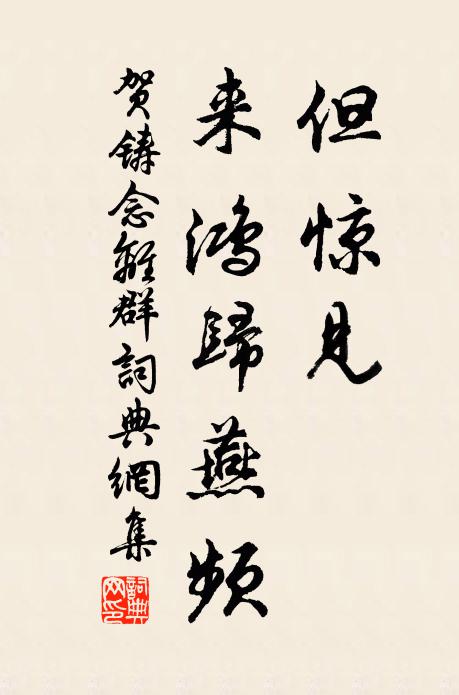 但惊见
来鸿歸燕频
贺鑄念離群詞典網集
詞典网印